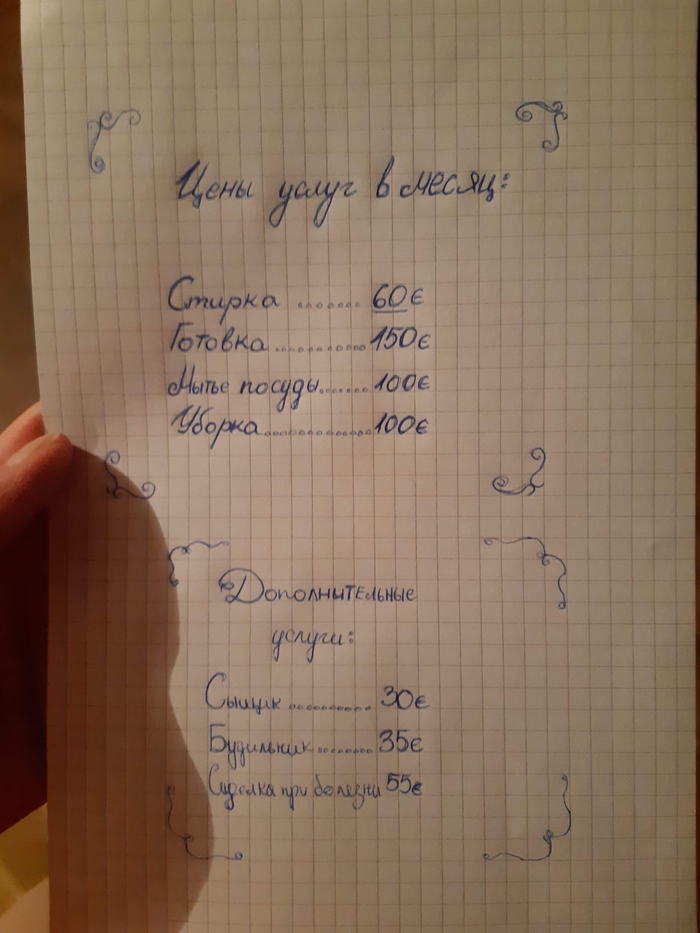 Цены услуг в месяц:
Стирка ....... 60€
Готовка............150€
Мытье посуды.......100€
Уборка..............100€
Дополнительные
услуги:
Сыщик .......... 30€
Будильник........35€
Сиделка при болезни 55€